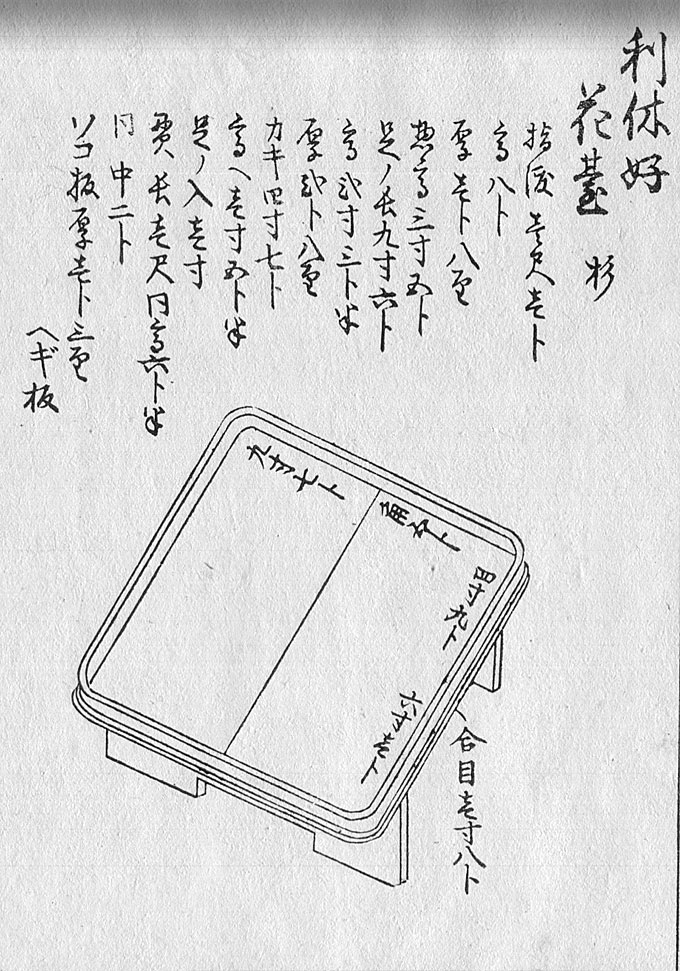 利休好
花臺 杉
指渡壱尺壱卜
高八卜
厚壱卜八厘
惣高三寸五卜
足ノ長九寸六卜
高弐寸三卜半
厚弐卜八厘
カキ四寸七卜
高ヘ壱寸五卜半
足ノ入壱寸
貫長壱尺同高六卜半
同中二卜
ソコ板厚壱卜三厘
ヘギ板
九寸七卜
四寸九卜
六寸壱卜
合目壱寸八卜